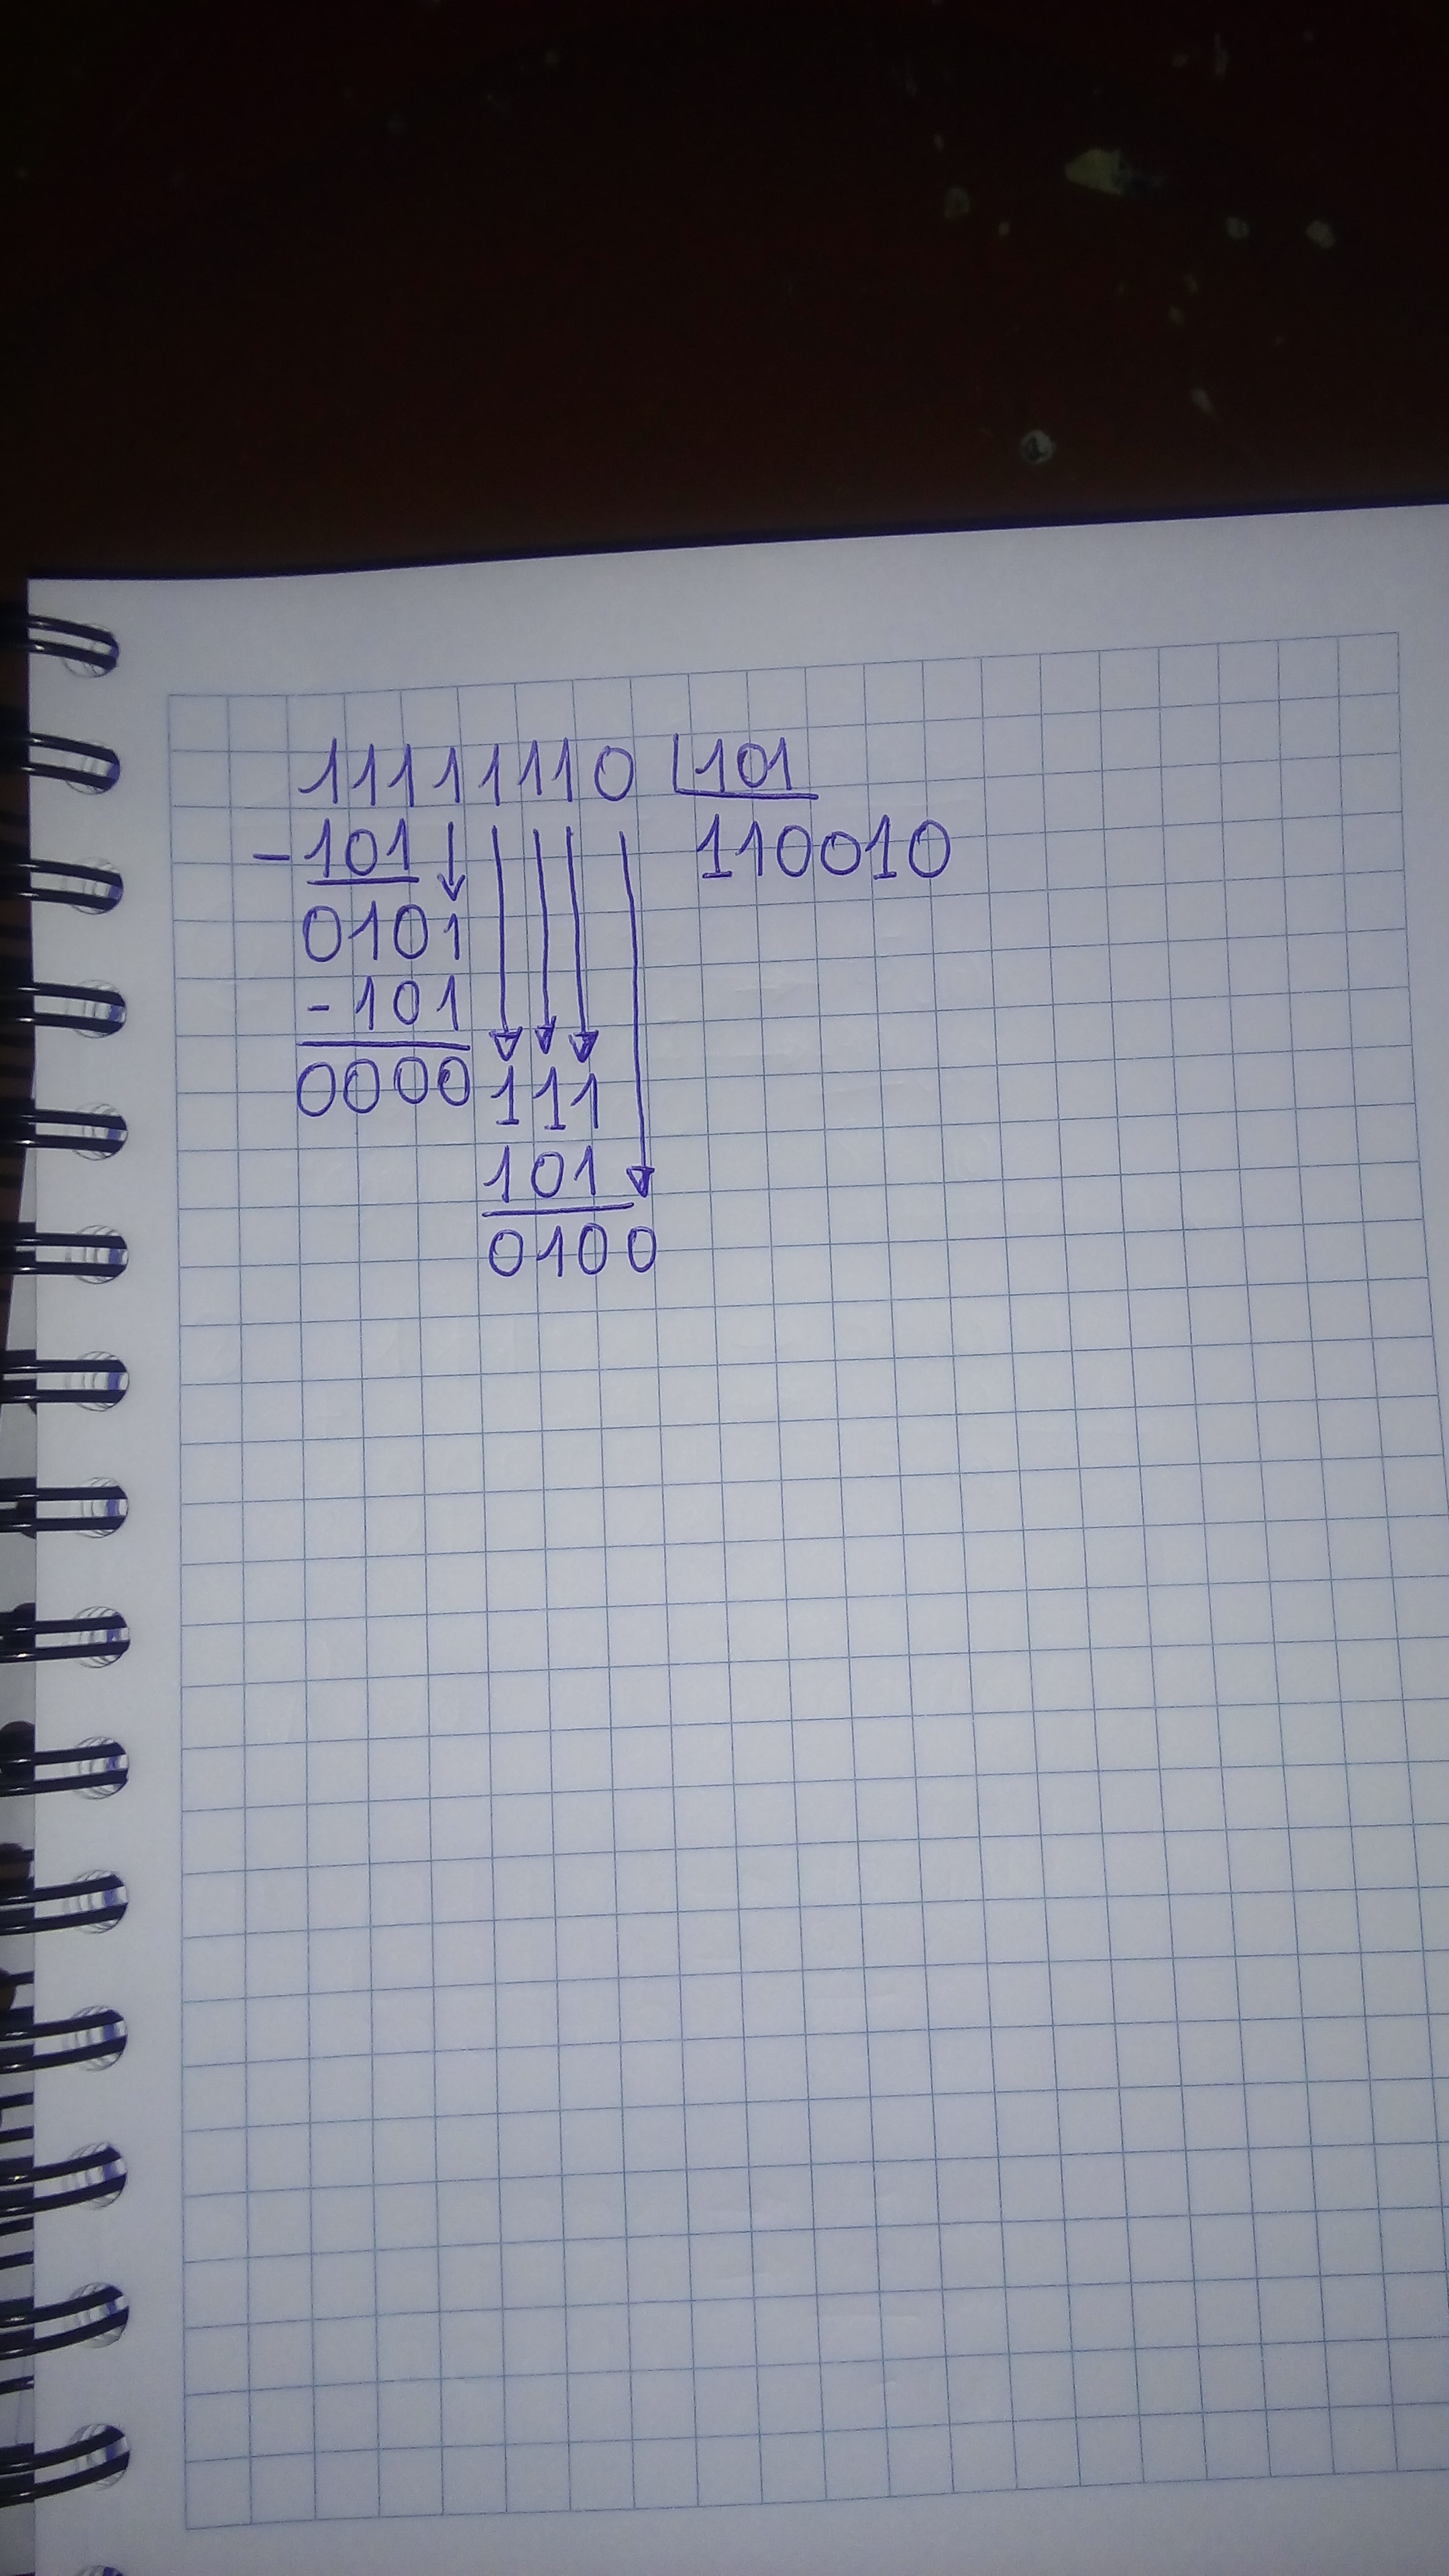 11111110 101
-101 110010
0101
-101
0000 111
101
0100